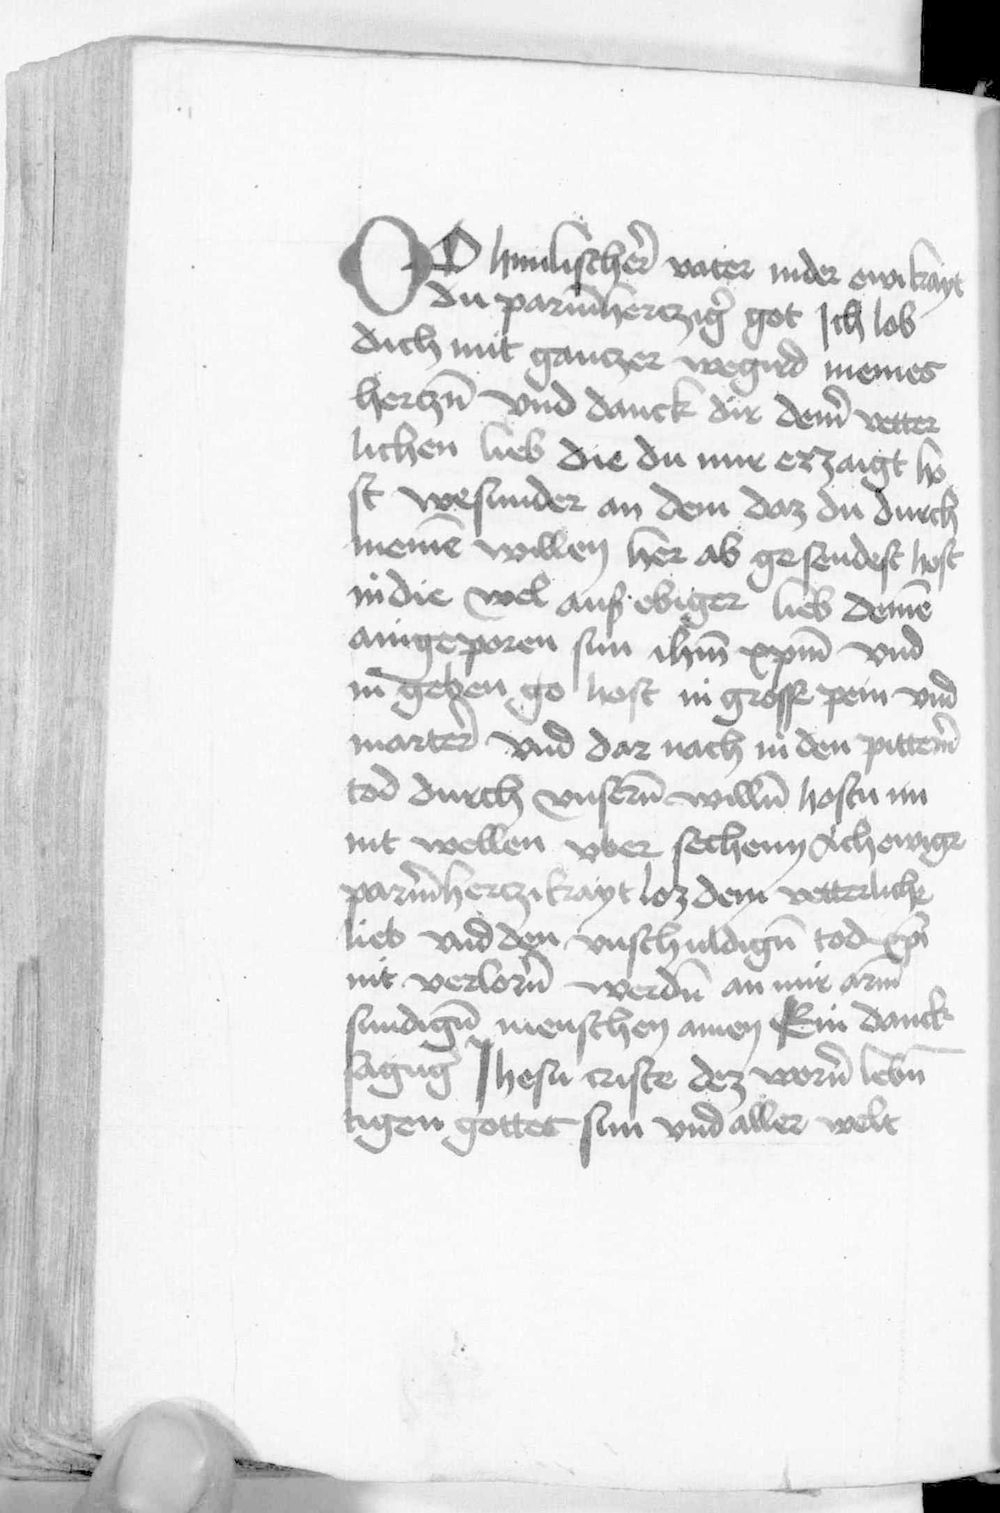 O O himlischer̃ vater in der ewikayt
du parm̃hertzig̃ got Ich lob
dich mit gantzer wegird meines
hertzn̄ vnd danck dir dein̄ vetter
lichen lieb die du mir erzaigt ho
st wesunder an dem daz du durch
meinē willen her ab gesendest host
in die wel auß ebiger lieb deinē
aingeporen sun ihm̄ xpm̄ vnd
in geben go host in grosse pein vnd
marter̃ vnd dar nach in den pittern̄
tod durch vnsern̄ willn̄ hostu im
nit wellen vber sechenn Ach ewige
parm̃hertzikayt loz dein vetterliche
lieb vnd den vnschuldign̄ tod xp̄i
nit verlorn̄ werdn̄ an mir arm̄
sundign̄ menschen amen Ein danck
sagūg Ihesu criste dez worn̄ lebn̄
tigen gottes sun vnd aller welt